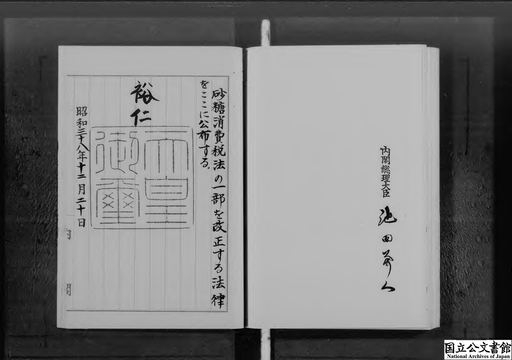 砂糖消費税法の一部を改正する法律
をここに公布する。
裕仁
天皇御璽
昭和三十八年十二月二十日
内閣総理大臣 池田勇人
国立公文書館
National Archives of Japan